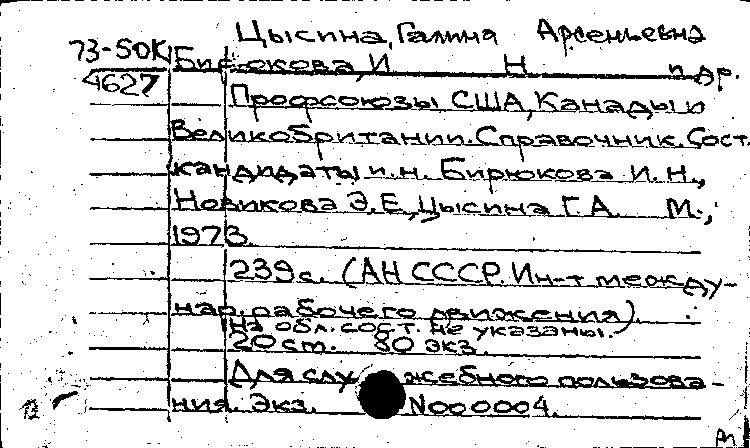 Цысина, Галина Арсеньевна
73-50К
Бирюкова, И Н и др.
4627
Профсоюзы США, Канады и
Великобритании. Справочник. Сост.
кандидаты и.н. Бирюкова И.Н.,
Новикова Э.Е, Цысина Г.А. М.,
1973.
239с. (АН СССР. Ин-т между-
нар. рабочего движения).
На обл. сост. не указаны.
20 ст. 80 экз.
Для служебного пользова-
ния. Экз. N000004.